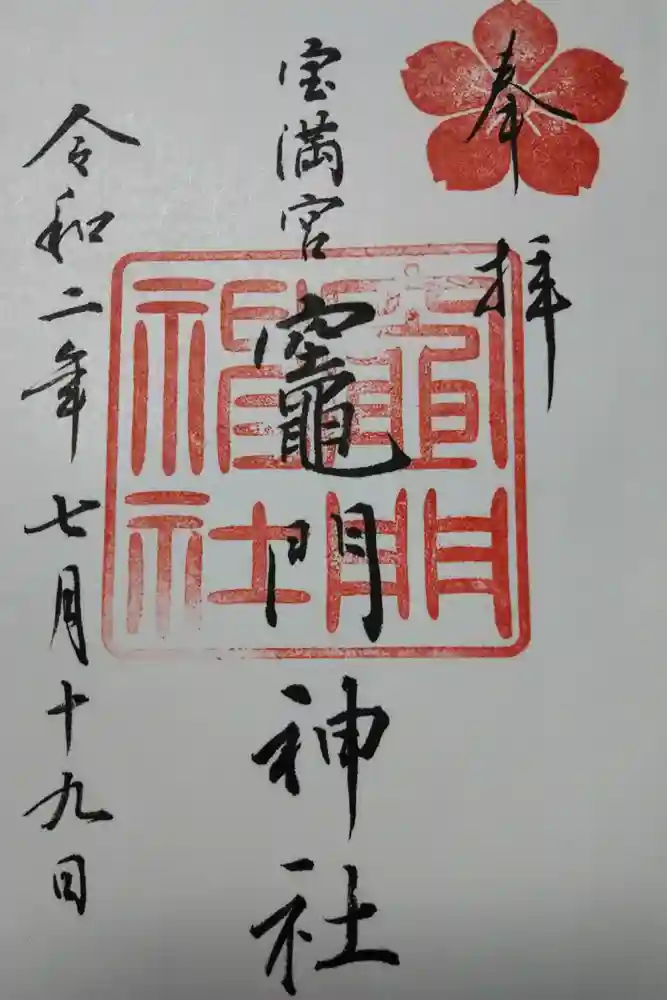 奉拝
宝満宮
竈門神社
令和二年七月十九日